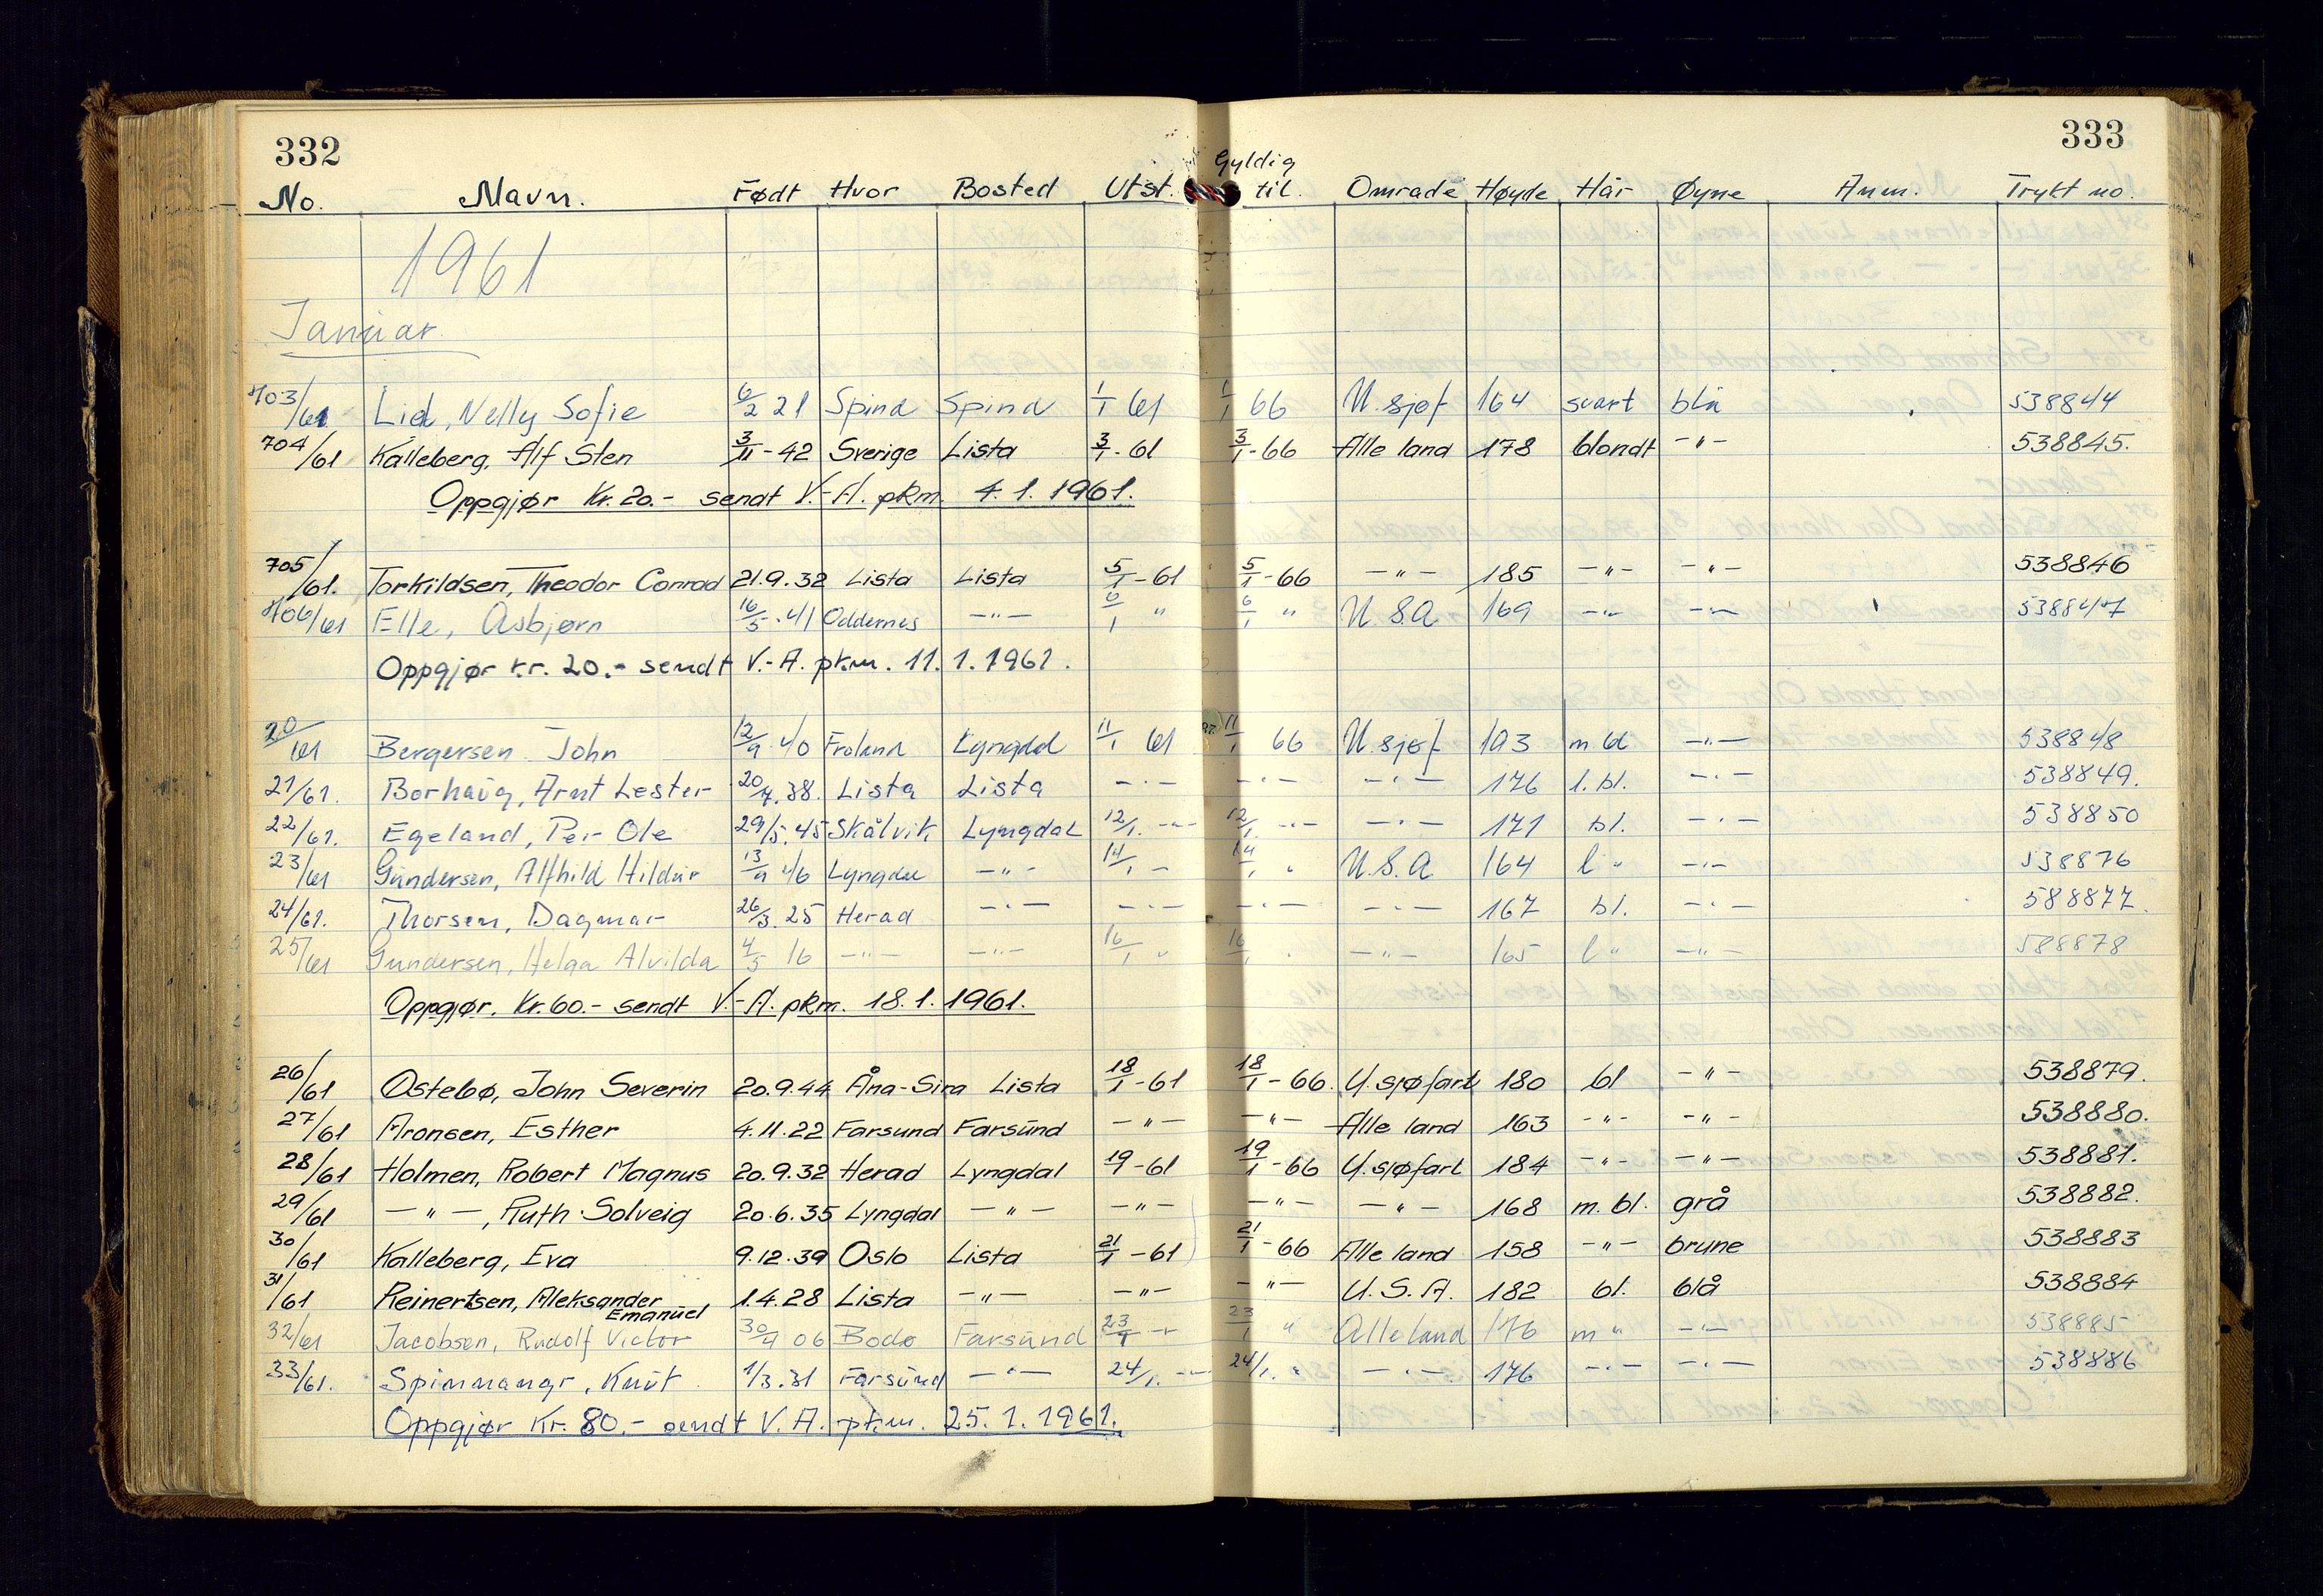 332
333
No. Navn. Født Hvor Bosted Utst. Gyldig til. Område Høyde Hår Øyne Anm. Trykt no.
1961
Januar
703/61 Lied, Nelly Sofie 6/2 21 Spind Spind 1/1 61 1/1 66 U. sjøf 164 svart blå 538844
704/61 Kalleberg, Alf Sten 3/11-42 Sverige Lista 3/1-61 3/1-66 Alle land 178 blondt -"- 538845.
Oppgjør Kr. 20.- sendt V.-A. pkm. 4.1.1961.
705/61. Torkildsen, Theodor Conrad 21.9.32 Lista Lista 5/1-61 5/1-66 -"- 185 -"- -"- 538846
706/61 Elle, Asbjørn 16/5.41 Oddernes -"- 6/1 " 6/1 " U.S.A 169 -"- -"- 538847
Oppgjør kr. 20.- sendt V.-A. pkm. 11.1.1961.
20/61 Bergersen John 12/9.40 Froland Lyngdal 11/1 61 11/1 66 U. sjøf 183 m bl -"- 538848
21/61. Borhaug, Arnt Lester 20/7.38. Lista Lista -"- -"- -"- 176 l. bl. -"- 538849.
22/61. Egeland, Per Ole 29/5.45 Skålvik Lyngdal 12/1. -"- 12/1. -"- -"- 171 bl. -"- 538850
23/61 Gundersen, Alfhild Hildur 13/9 46 Lyngdal -"- 14/1 - 14/1 " U.S.A 164 l " -"- 538876
24/61. Thorsen, Dagmar 26/3.25 Herad -"- -"- -"- -"- 167 bl. -"- 588877.
25/61 Gundersen, Helga Alvilda 4/5 16 -"- -"- 16/1 " 16/1 " -"- 165 l " -"- 588878
Oppgjør. Kr. 60.- sendt V.-A. pkm. 18.1.1961.
26/61 Ostebø, John Severin 20.9.44 Åna-Sira Lista 18/1-61 18/1-66. U. sjøfart 180 bl -"- 538879.
27/61 Aronsen, Esther 4.11.22 Farsund Farsund -"- -"- Alle land 163 -"- -"- 538880.
28/61 Holmen, Robert Magnus 20.9.32 Herad Lyngdal 19-61 19/1-66 U. sjøfart 184 -"- -"- 538881.
29/61 -"-, Ruth Solveig 20.6.35 Lyngdal -"- -"- -"- -"- 168 m. bl. grå 538882.
30/61 Kalleberg, Eva 9.12.39 Oslo Lista 21/1-61 21/1-66 Alle land 158 -"- brune 538883
31/61 Reinertsen, Aleksander Emanuel 1.4.28 Lista -"- -"- -"- U.S.A. 182 bl. blå 538884
32/61 Jacobsen, Rudolf Victor 30/9 06 Bodø Farsund 23/1 -"- 23/1 " Alle land 176 m " -"- 538885
33/61. Spinnangr, Knut 1/3.31 Farsund -"- 24/1. -"- 24/1. " -"- 176 -"- -"- 538886
Oppgjør Kr. 80.- sendt V.A. pkm. 25.1.1961.